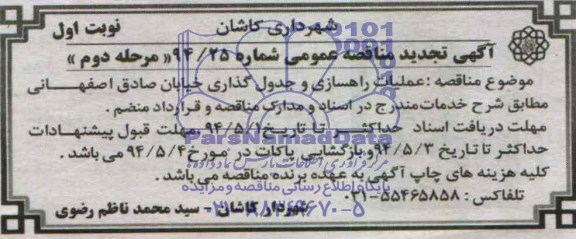 شهرداری کاشان
نوبت اول
آگهی تجدید مناقصه عمومی شماره ۹۴/۲۵ « مرحله دوم »
موضوع مناقصه : عملیات راهسازی و جدول گذاری خیابان صادق اصفهانی
مطابق شرح خدمات مندرج در اسناد و مدارک مناقصه و قرارداد منضم .
مهلت دریافت اسناد حداکثر تا تاریخ ۹۴/۵/۱ مهلت قبول پیشنهادات
حداکثر تا تاریخ ۹۴/۵/۳ و بازگشایی پاکات در مورخ ۹۴/۵/۴ می باشد .
کلیه هزینه های چاپ آگهی به عهده برنده مناقصه می باشد .
تلفاکس : ۵۵۴۶۵۸۵۸-۰۳۱
شهردار کاشان - سید محمد ناظم رضوی
ParsNamadData
پایگاه اطلاع رسانی مناقصه و مزایده